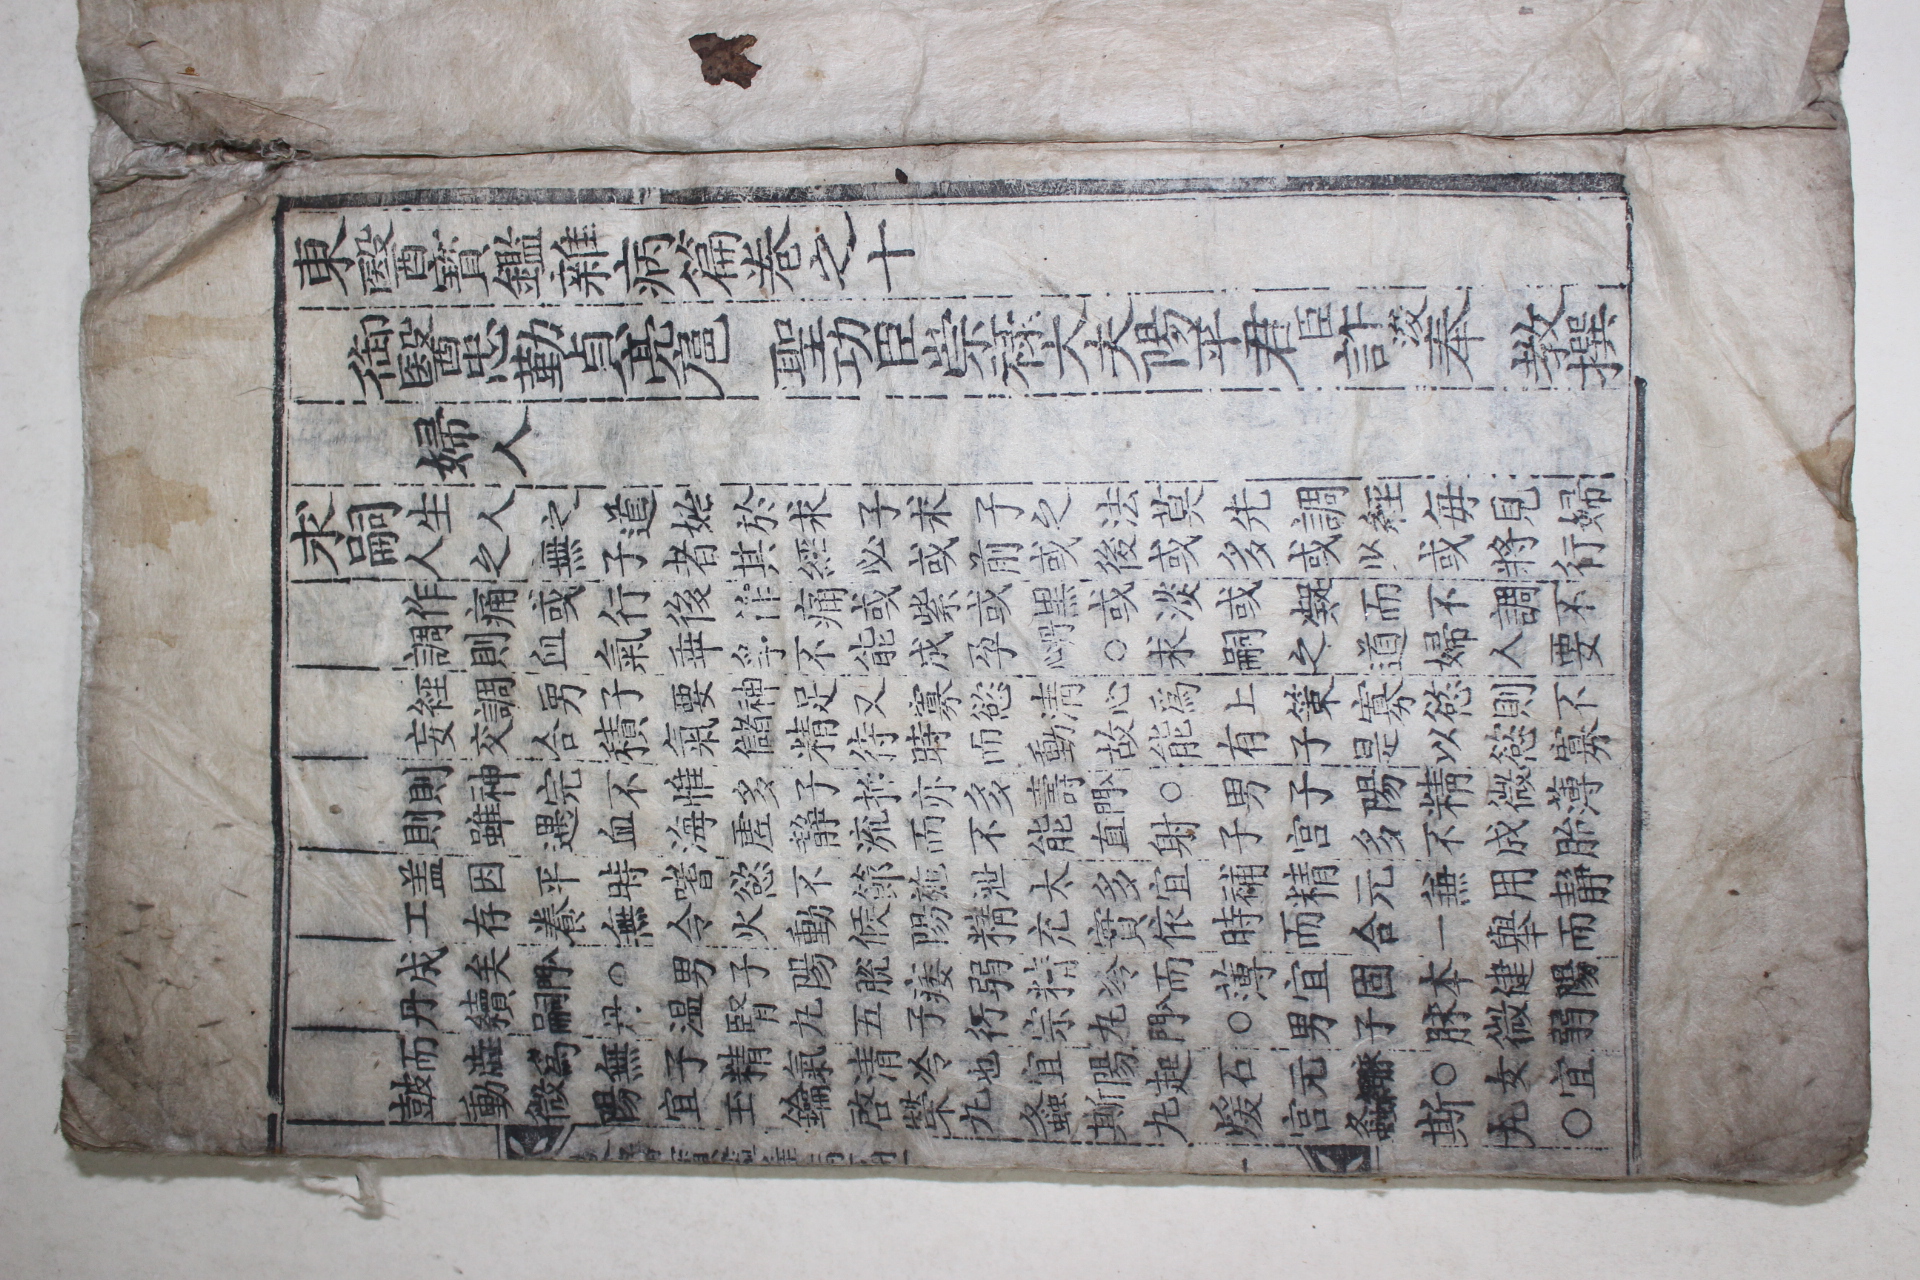 東醫寶鑑雜病篇卷之十
御醫忠勤貞亮扈 聖功臣崇祿大夫陽平君臣許浚奉 教撰
婦人
求嗣
生人之道始於求子求子之法莫先調經每見婦
人之無子者其經必或前或後或多或少或將行
作痛或行後作痛或紫或黑或淡或凝而不調不
調則血氣乖爭不能成孕丹心○求嗣之道婦人要
經調男子要神足又寡慾淸心爲上策寡慾則不
妄交合積氣儲精待時而動故能有子是以慾寡
則神完不惟多子抑亦多壽入門○男子陽精微薄
則雖遇血海虛靜流而不能直射子宮多不成胎
盖因平時嗜慾不節施泄太多宜補精元兼用靜
工存養無令火動候陽精充實依時而合一擧而
成矣入門○男子陽脫痿弱精冷而薄宜固本健陽
丹續嗣丹溫腎丸五子衍宗丸入門○男子脉微弱
而澁爲無子精氣淸冷也宜陽起石元○女宜
鼓動微陽宜玉鑰啓榮丸螽斯丸煖宮螽斯丸○